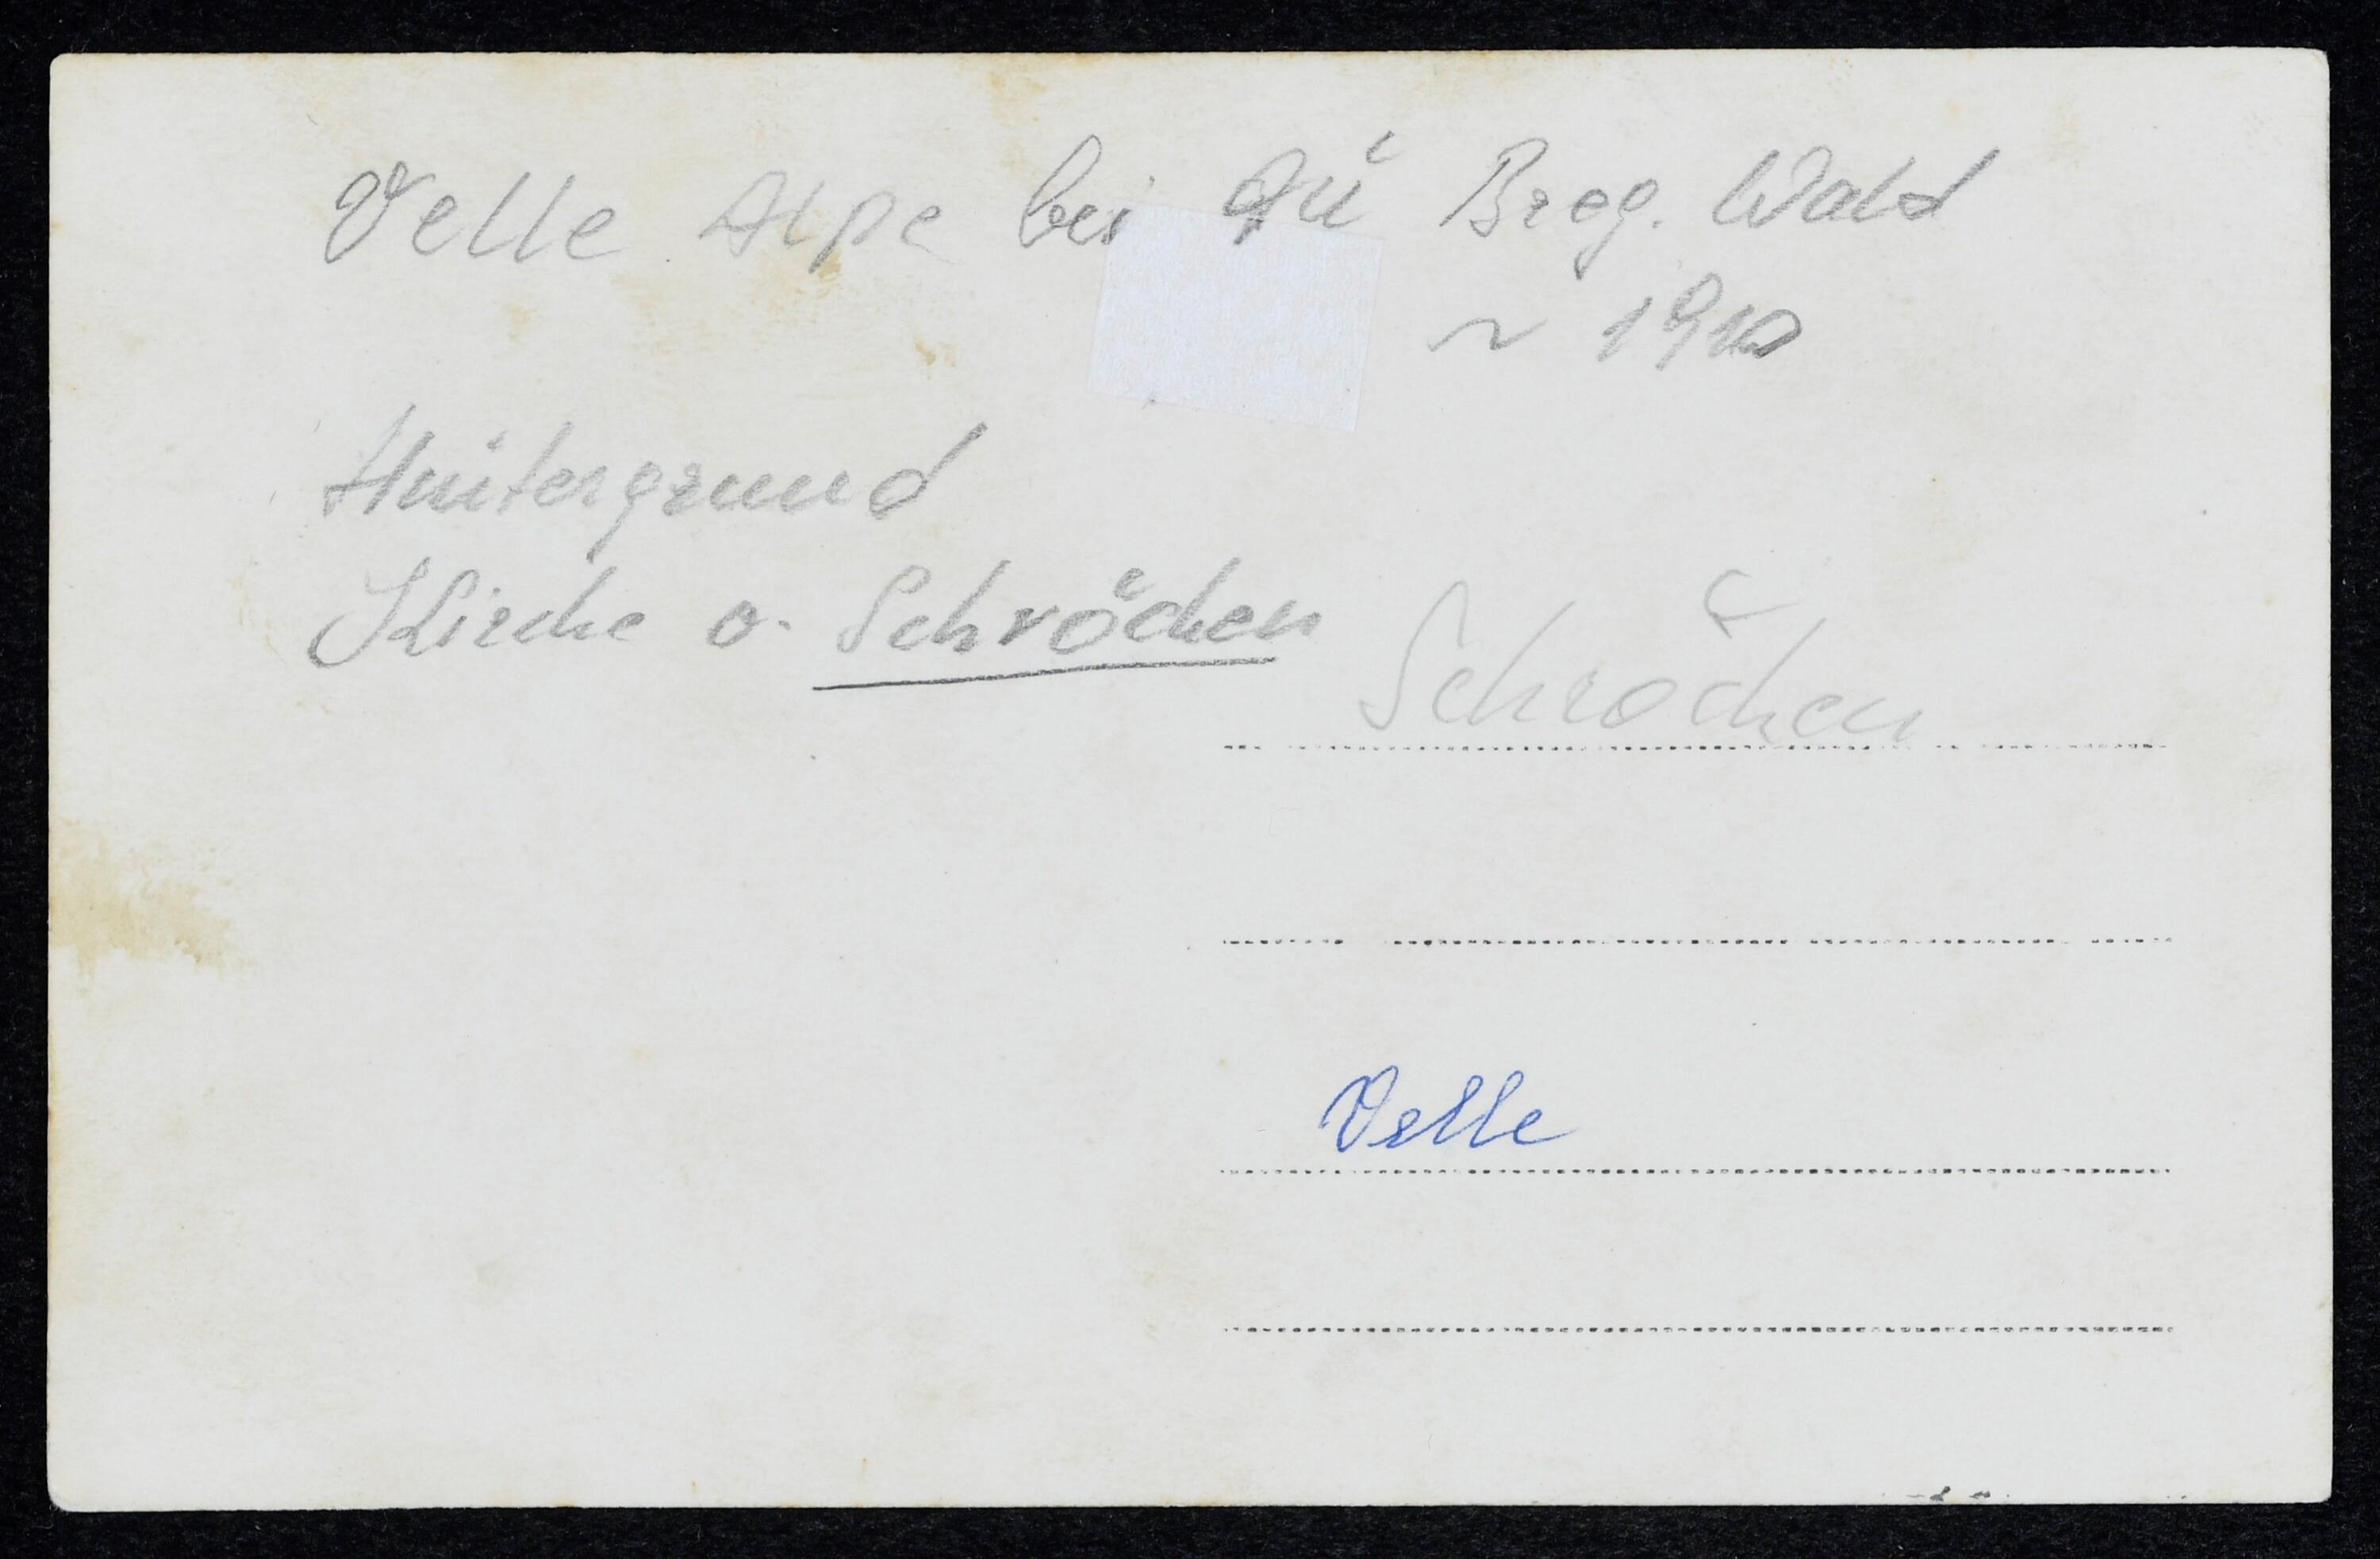 Velle Alpe bei Au Breg. Wald
~ 1910
Hintergrund
Kirche v. Schröcken
Schröcken
Velle